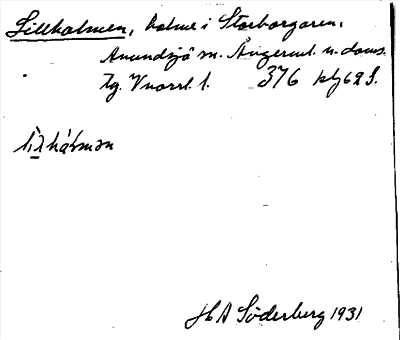 Lillholmen, holme i Storborgaren,
Anundsjö sn. Ångerml. n. doms.
Tg. Vnorrl. l. 376 kbl 62 S.
HA Söderberg 1931